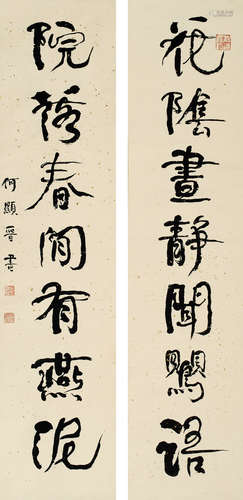 花陰晝靜聞鸎語
院春閒有燕泥
何顯晉書